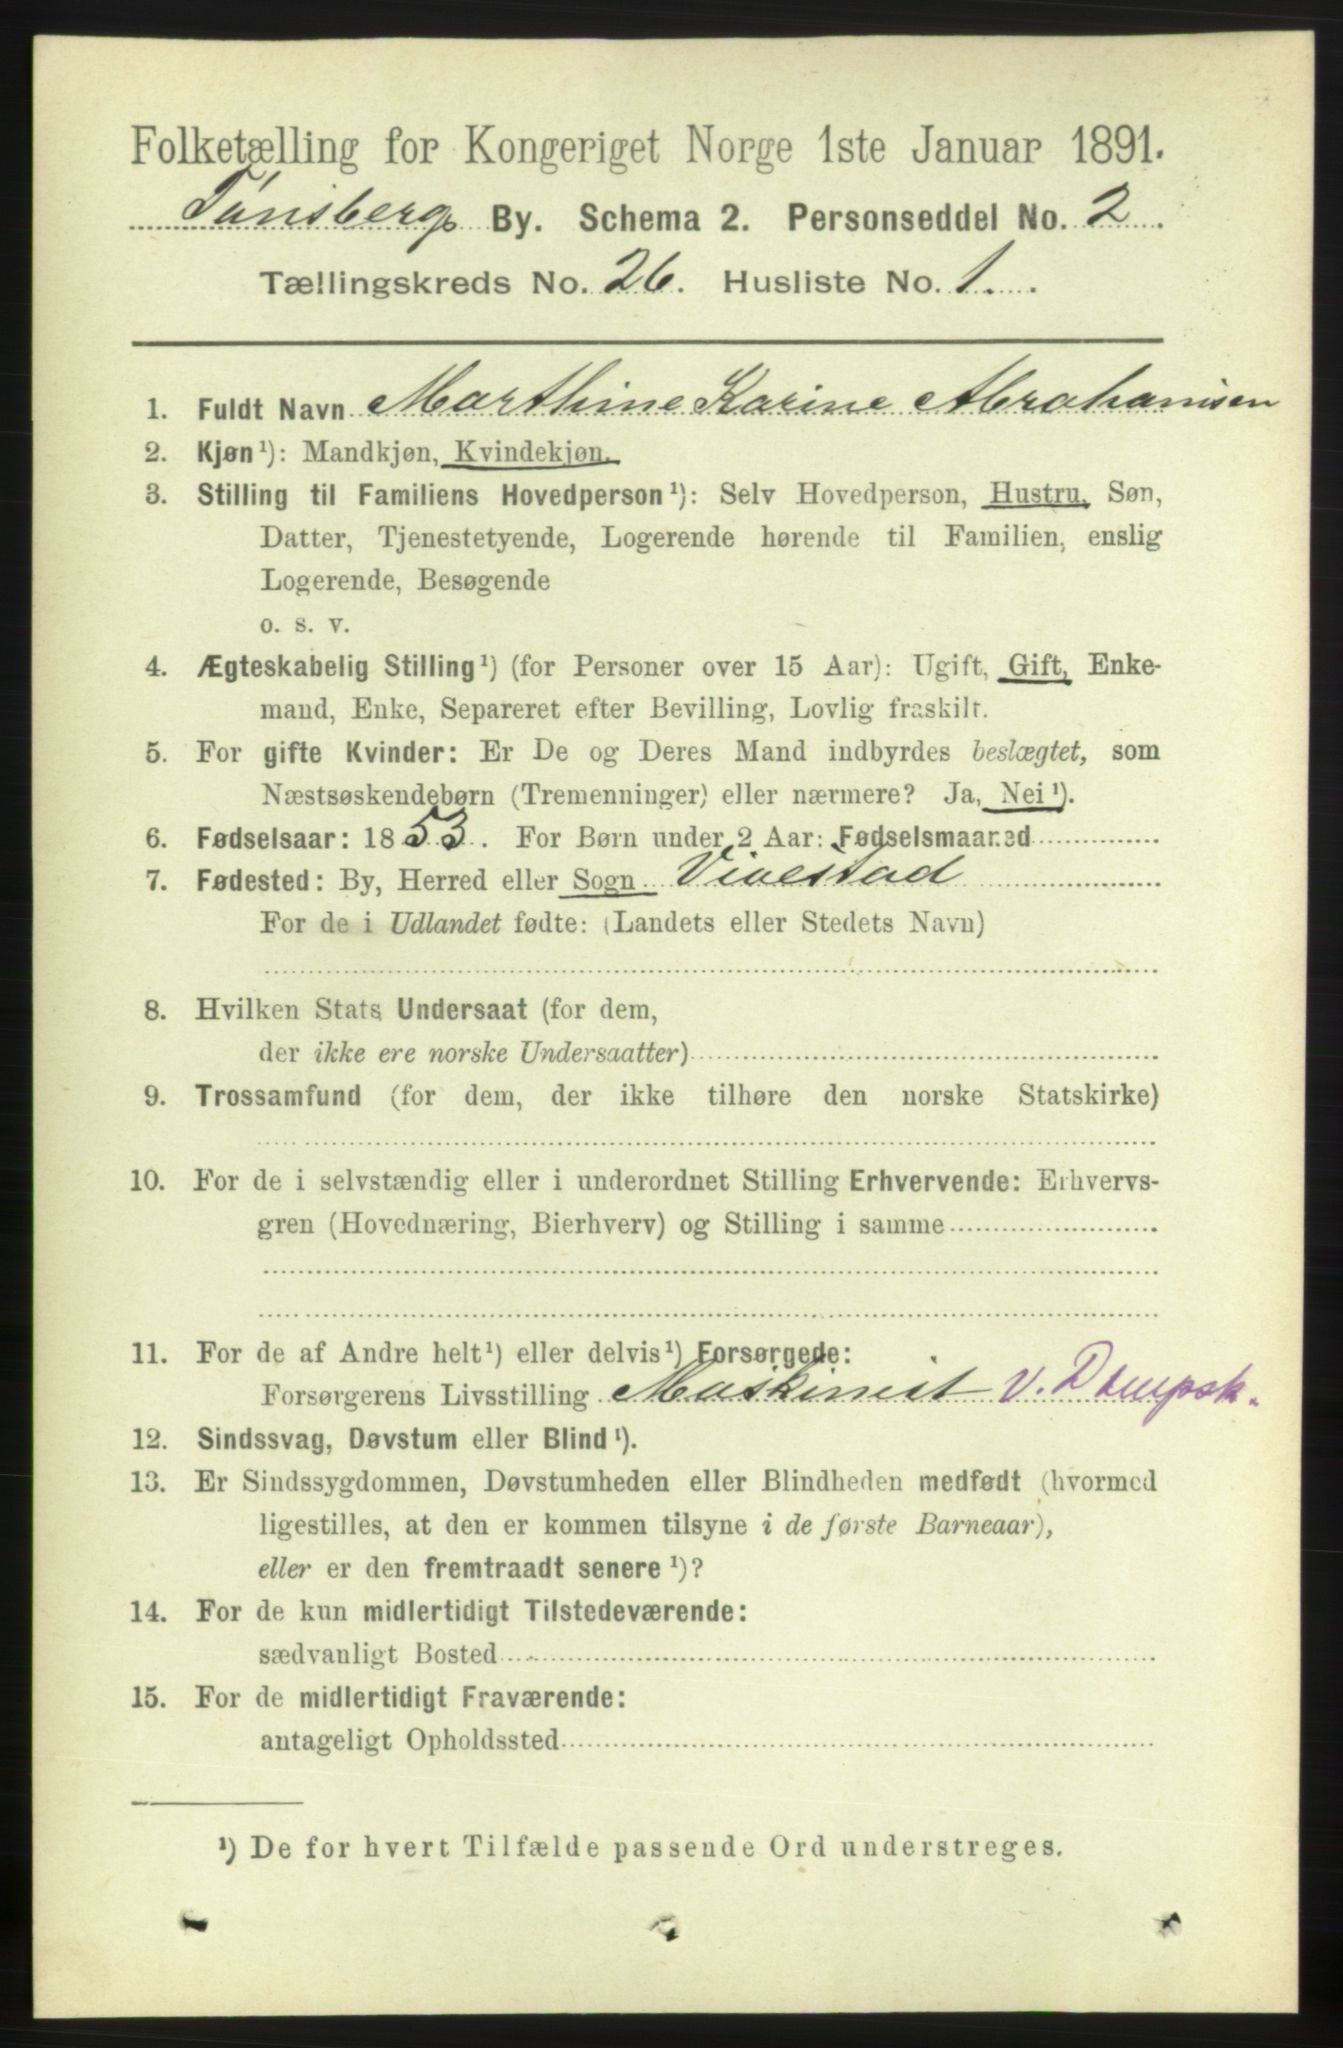 Folketælling for Kongeriget Norge 1ste Januar 1891.
Tønsberg By. Schema 2. Personseddel No. 2
Tællingskreds No. 26. Husliste No. 1.
1. Fuldt Navn Marthine Karine Abrahamsen
2. Kjøn¹): Mandkjøn, Kvindekjøn.
3. Stilling til Familiens Hovedperson¹): Selv Hovedperson, Hustru, Søn,
Datter, Tjenestetyende, Logerende hørende til Familien, enslig
Logerende, Besøgende
o. s. v.
4. Ægteskabelig Stilling¹) (for Personer over 15 Aar): Ugift, Gift, Enke-
mand, Enke, Separeret efter Bevilling, Lovlig fraskilt.
5. For gifte Kvinder: Er De og Deres Mand indbyrdes beslægtet, som
Næstsøskendebørn (Tremenninger) eller nærmere? Ja, Nei¹).
6. Fødselsaar: 1853. For Børn under 2 Aar: Fødselsmaaned
7. Fødested: By, Herred eller Sogn Vivestad
For de i Udlandet fødte: (Landets eller Stedets Navn)
8. Hvilken Stats Undersaat (for dem,
der ikke ere norske Undersaatter)
9. Trossamfund (for dem, der ikke tilhøre den norske Statskirke)
10. For de i selvstændig eller i underordnet Stilling Erhvervende: Erhvervs-
gren (Hovednæring, Bierhverv) og Stilling i samme
11. For de af Andre helt¹) eller delvis¹) Forsørgede:
Forsørgerens Livsstilling Maskinist v. Dampsk.
12. Sindssvag, Døvstum eller Blind¹).
13. Er Sindssygdommen, Døvstumheden eller Blindheden medfødt (hvormed
ligestilles, at den er kommen tilsyne i de første Barneaar),
eller er den fremtraadt senere¹)?
14. For de kun midlertidigt Tilstedeværende:
sædvanligt Bosted
15. For de midlertidigt Fraværende:
antageligt Opholdssted
¹) De for hvert Tilfælde passende Ord understreges.